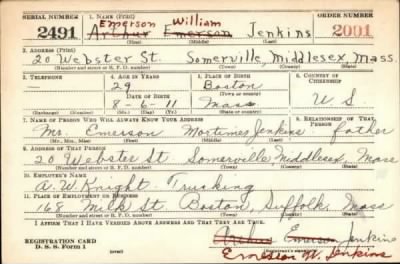 SERIAL NUMBER 1. NAME (Print) ORDER NUMBER
Emerson William
2491 Arthur Emerson Jenkins 2001
(First) (Middle) (Last)
2. ADDRESS (Print)
20 Webster St. Somerville, Middlesex Mass.
(Number and street or R. F. D. number) (Town) (County) (State)
3. TELEPHONE 4. AGE IN YEARS 5. PLACE OF BIRTH 6. COUNTRY OF CITIZENSHIP
— 29 Boston
(Town or county)
DATE OF BIRTH
8-6-11 Mass U S
(Exchange) (Number) (Mo.) (Day) (Yr.) (State or country)
7. NAME OF PERSON WHO WILL ALWAYS KNOW YOUR ADDRESS 8. RELATIONSHIP OF THAT PERSON
Mr. Emerson Mortimer Jenkins Father
(Mr., Mrs., Miss) (First) (Middle) (Last)
9. ADDRESS OF THAT PERSON
20 Webster St Somerville Middlesex, Mass
(Number and street or R. F. D. number) (Town) (County) (State)
10. EMPLOYER'S NAME
A. W. Knight Trucking
11. PLACE OF EMPLOYMENT OR BUSINESS
168 Milk St Boston, Suffolk, Mass
(Number and street or R. F. D. number) (Town) (County) (State)
I AFFIRM THAT I HAVE VERIFIED ABOVE ANSWERS AND THAT THEY ARE TRUE.
REGISTRATION CARD Arthur Emerson Jenkins
D. S. S. Form 1 (over) Emerson W. Jenkins